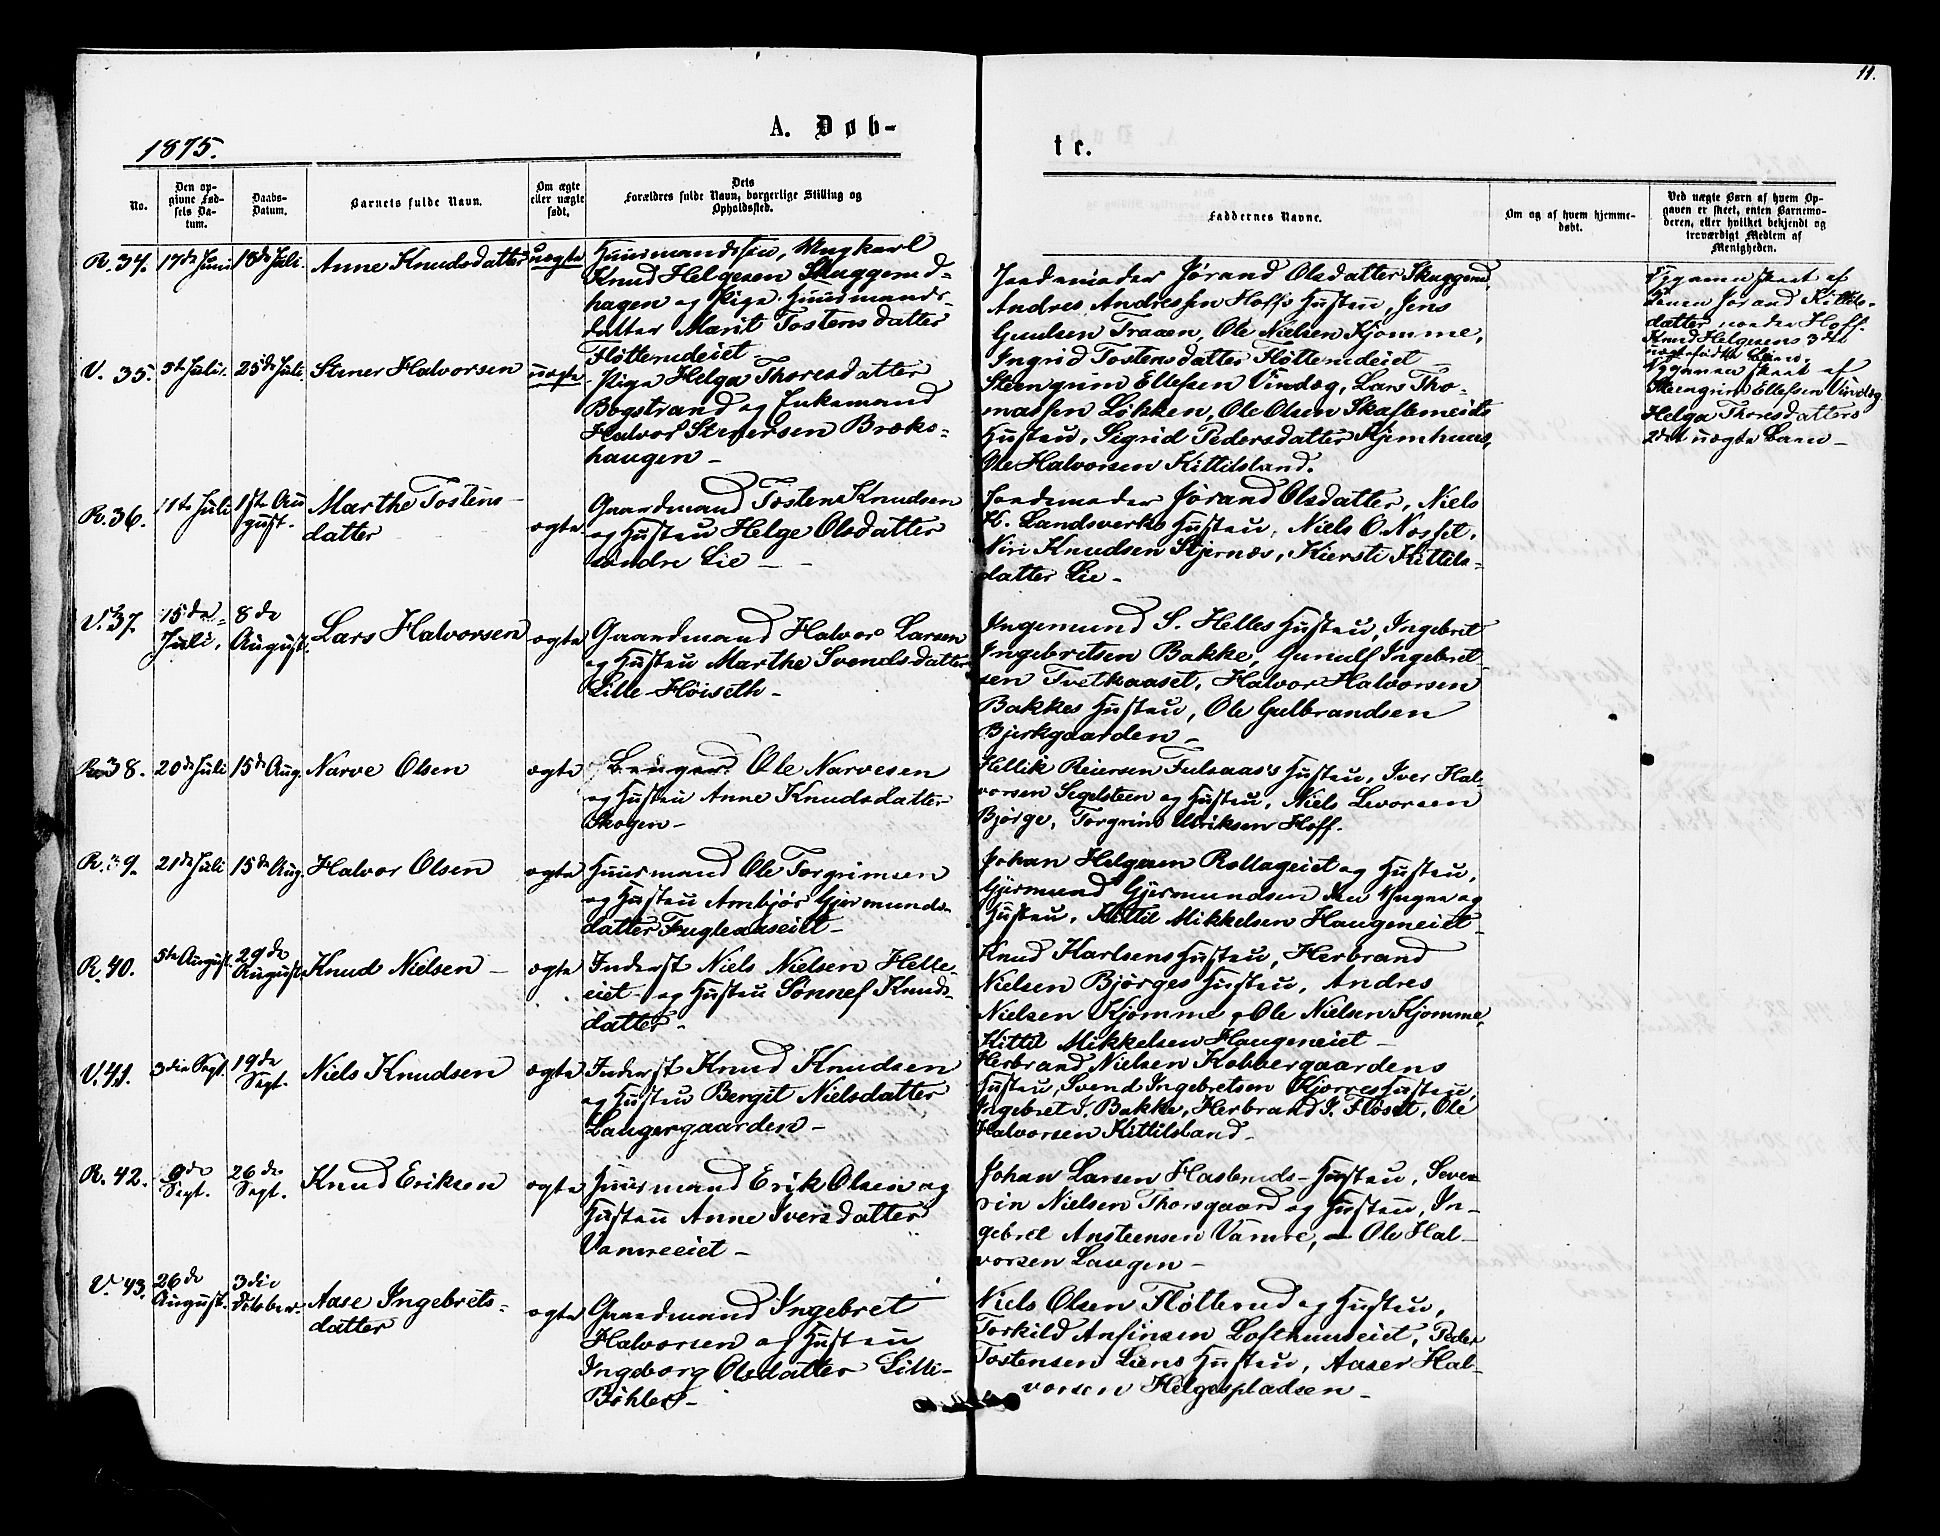 11.
1875.
A. Døb-
te.
No.
Den op-
givne Fød-
sels Da-
tum.
Daabs-
Datum.
Barnets fulde Navn.
Om ægte
eller uægte
født.
Dets
Forældres fulde Navn, borgerlige Stilling og
Opholdssted.
Faddernes Navne.
Om og af hvem hjemme-
døbt.
Ved uægte Børn af hvem Op-
gaven er skeet, enten Barnemo-
deren, eller hvilket bekjendt og
troværdigt Medlem af
Menigheden.
R. 34.
17de Juni
18de Juli.
Anne Knudsdatter
uægte
Huusmandssøn, Ungkarl
Knud Helgesen Skuggerud-
hagen og Pige Huusmands-
datter Marit Tostensdatter
Fløtterudeiet
Jordemoder Jørand Olsdatter Skuggerud,
Andres Andressen Hoffs Hustru, Jens
Gunlsen Traaen, Ole Nielsen Kjomme,
Ingrid Tostensdatter Fløtterudeiet
Opgaven skeet af
Konen Jørand Kittils-
datter nordre Hoff.
Knud Helgesens 3die
uægtefødte Barn.
V. 35.
5te Juli.
25de Juli.
Stener Halvorsen
uægte
Pige Helga Thoresdatter
Bogstrand og Enkemand
Halvor Stenersen Bræks-
haugen -
Steengrim Ellefsen Vindeg, Lars Tho-
massen Løkken, Ole Olsen Skaftereids
Hustru, Sigrid Pedersdatter Kjemhuus,
Ole Halvorsen Kittilsland.
Opgaven skeet af
Steengrim Ellefsen Vindeg
Helga Thoresdatters
2det uægte Barn -
R. 36.
11te Juli
1ste Au
gust.
Marthe Tostens-
datter
ægte
Gaardmand Tosten Knudsen
og Hustru Helge Olsdatter
søndre Lie -
Jordemoder Jørand Olsdatter, Niels
K. Landsverks Hustru, Niels O. Nosset,
Niri Knudsen Stjernæs, Kiersti Kittils-
datter Lie -
V. 37.
15de
Juli,
8de
August.
Lars Halvorsen
ægte
Gaardmand Halvor Larsen
og Hustru Marthe Svendsdatter
Lille Høiseth -
Ingemund S. Helles Hustru, Ingebret
Ingebretsen Bakke, Gunulf Ingebret-
sen Tvetkaaset, Halvor Halvorsen
Bakkes Hustru, Ole Gulbrandsen
Bjerkgaarden -
R. 38.
20de Juli
15de Aug.
Narve Olsen
ægte
Ole Narvesen
og Hustru Anne Knudsdatter
Skogen -
Hellik Reiersen Fulsaas's Hustru, Iver Hal-
vorsen Segelsteen og Hustru, Niels Levorsen
Bjørge, Torgrim Ulriksen Hoff.
R. 39.
21de Juli
15de Aug.
Halvor Olsen
ægte
Huusmand Ole Torgrimsen
og Hustru Ambjør Gjermunds-
datter Fugleaaseiet -
Johan Helgesen Rollageiet og Hustru,
Gjermund Gjermundsen den Yngre og
Hustru, Kittil Mikkelsen Haugeneiet -
R. 40.
5te August.
29de
August.
Knud Nielsen -
ægte
Inderst Niels Nielsen Helle-
eiet og Hustru Sønnef Knuds-
datter -
Knud Karlsens Hustru, Herbrand
Nielsen Bjørges Hustru, Andres
Nielsen Kjomme, Ole Nielsen Kjomme,
Kittil Mikkelsen Haugeneiet -
V. 41.
3die Sept.
19de
Sept.
Niels Knudsen
ægte
Inderst Knud Knudsen
og Hustru Bergit Nielsdatter
Laugergaarden -
Herbrand Nielsen Kobbergaardens
Hustru, Svend Ingebretsen Kjørres Hustru,
Ingebret I. Bakke, Herbrand I. Fløset, Ole
Halvorsen Kittilsland -
R. 42.
9de
Sept.
26de
Sept.
Knud Eriksen
ægte
Huusmand Erik Olsen og
Hustru Anne Iversdatter
Vamreeiet -
Johan Larsen Haslerud's Hustru, Seve-
rin Nielsen Thorsgaard og Hustru, In-
gebret Ansteensen Vamre, Ole Hal-
vorsen Laugen -
V. 43.
26de
August.
3die
October.
Aase Ingebrets-
datter
ægte
Gaardmand Ingebret
Halvorsen og Hustru
Ingeborg Olsdatter Lille-
Bøhler -
Niels Olsen Fløtterud og Hustru,
Torkild Anfinsen Lofthuuseiet, Peder
Tostensen Liens Hustru, Aaser Hal-
vorsen Helgespladsen -